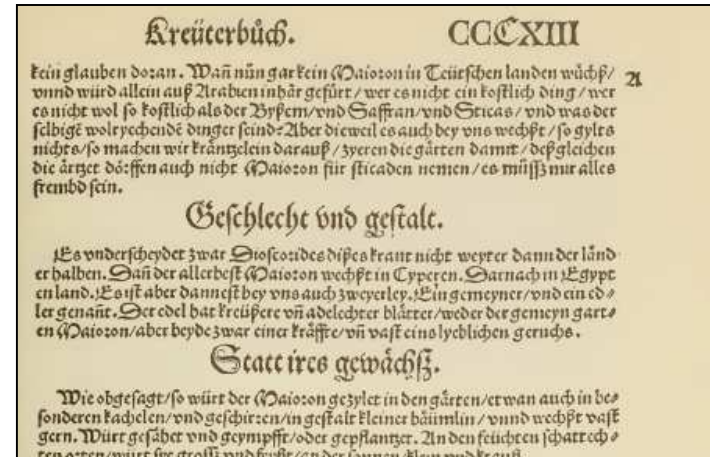 Kreüterbůch. CCCXIII
kein glauben doran. Wañ nůn gar kein Maioron in Teütschen landen wůchß/ A
vnnd würd allein auß Arabien inhär gefürt/ wer es nicht ein kostlich ding/ wer
es nicht wol so kostlich als der Bysem/vnd Saffran/vnd Sticas/ vnd was der
selbigē wolryechendē dinger seind? Aber dieweil es auch bey vns wechßt/ so gylts
nichts/so machen wir kräntzelein darauß/ zyeren die gärten damit/ deßgleichen
die ärtzet dörffen auch nicht Maioron für sticaden nemen/ es müssz nur alles
frembd sein.
Geschlecht vnd gestalt.
Es vnderscheydet zwar Dioscorides dißes kraut nicht weyter dann der länd
er halben. Dañ der allerbest Maioron wechßt in Cyperen. Darnach in Egypt
en land. Es ist aber dannest bey vns auch zweyerley. Ein gemeyner/ vnd ein ed⸗
ler genañt. Der edel hat kreüßere vñ adelechter blätter/weder der gemeyn gart⸗
en Maioron/aber beyde zwar einer kräffte/vñ vast eins lyeblichen geruchs.
Statt ires gewächsz.
Wie obgesagt/so würt der Maioron gezylet in den gärten/etwan auch in be⸗
sonderen kachelen/vnd geschirren/in gestalt kleiner bäümlin/ vnnd wechßt vast
gern. Würt gesähet vnd geympfft/oder gepflantzet. An den feüchten schattech⸗
ten orten/würt sye grosz vnd